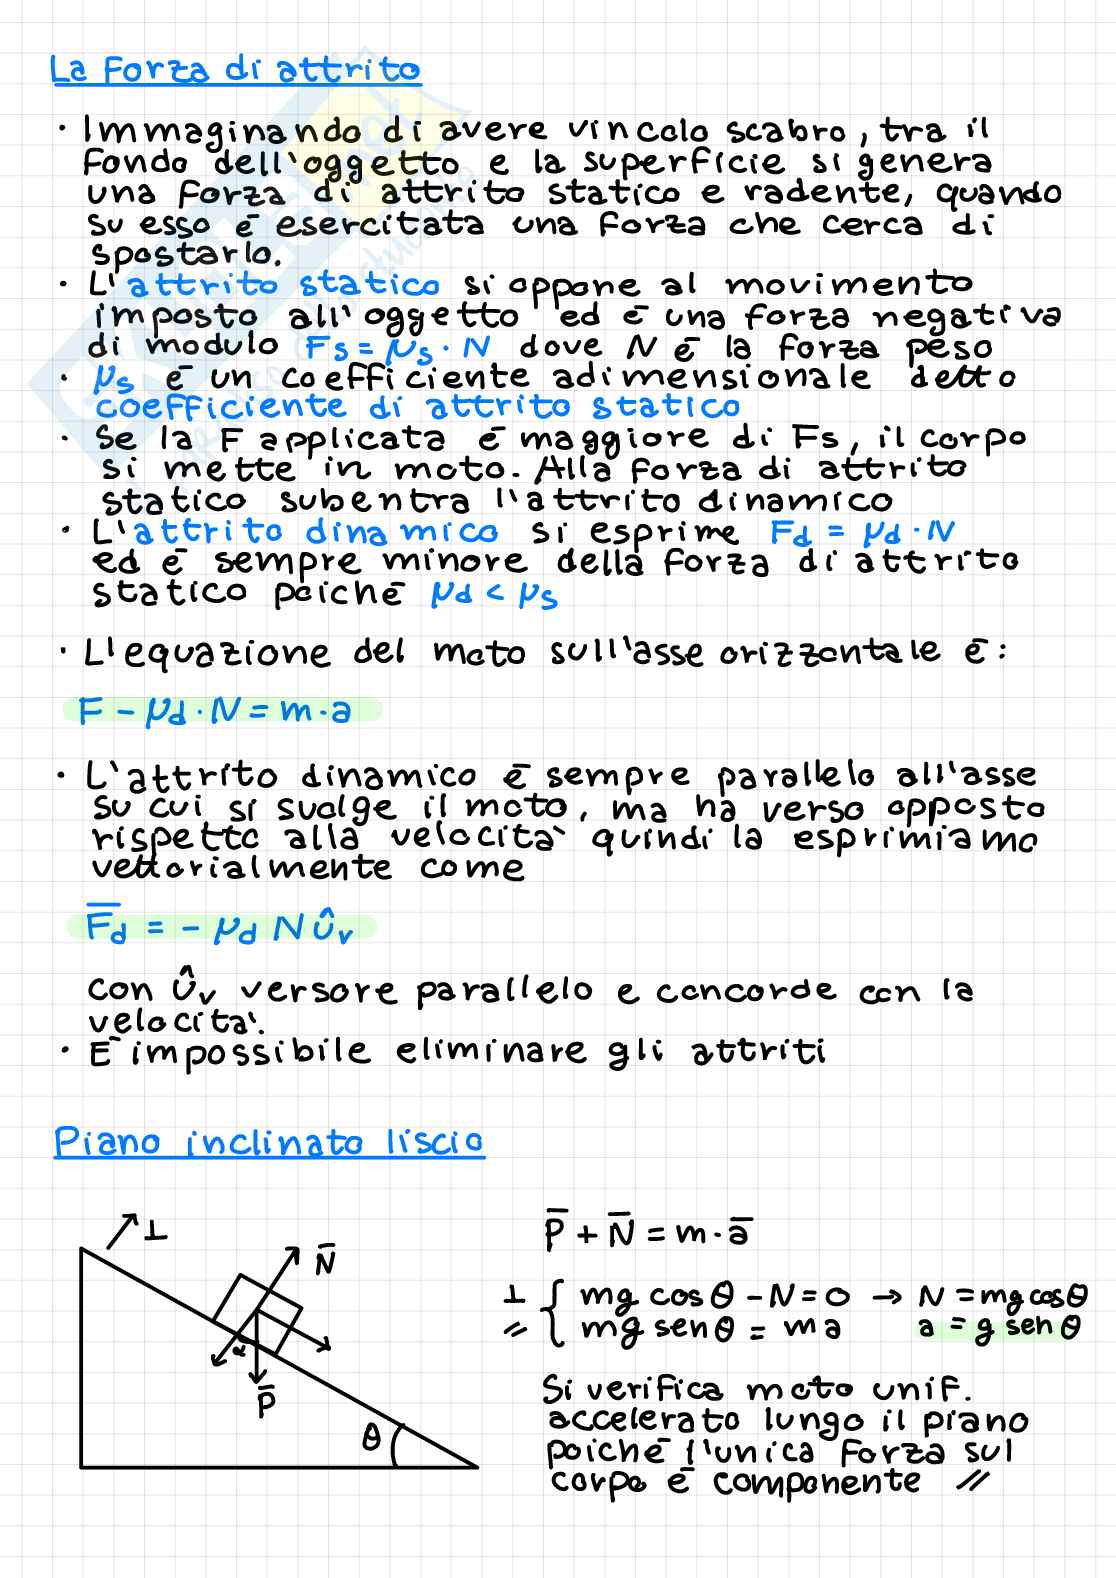 La Forza di attrito
• Immaginando di avere vincolo scabro, tra il
fondo dell'oggetto e la superficie si genera
una forza di attrito statico e radente, quando
su esso è esercitata una forza che cerca di
spostarlo.
• L'attrito statico si oppone al movimento
imposto all'oggetto ed è una forza negativa
di modulo Fs = μs · N dove N è la forza peso
• μs è un coefficiente adimensionale detto
coefficiente di attrito statico
• Se la F applicata è maggiore di Fs, il corpo
si mette in moto. Alla forza di attrito
statico subentra l'attrito dinamico
• L'attrito dinamico si esprime Fd = μd · N
ed è sempre minore della forza di attrito
statico poiché μd < μs
• L'equazione del moto sull'asse orizzontale è:
F - μd · N = m · a
• L'attrito dinamico è sempre parallelo all'asse
su cui si svolge il moto, ma ha verso opposto
rispetto alla velocità quindi la esprimiamo
vettorialmente come
F̅d = - μd N Ûv
con Ûv versore parallelo e concorde con la
velocità.
• È impossibile eliminare gli attriti
Piano inclinato liscio
⊥
N̅
α
P̅
θ
P̅ + N̅ = m · a̅
⊥ { mg cosθ - N = 0 → N = mg cosθ
// { mg senθ = ma a = g senθ
Si verifica moto unif.
accelerato lungo il piano
poiché l'unica forza sul
corpo è componente //